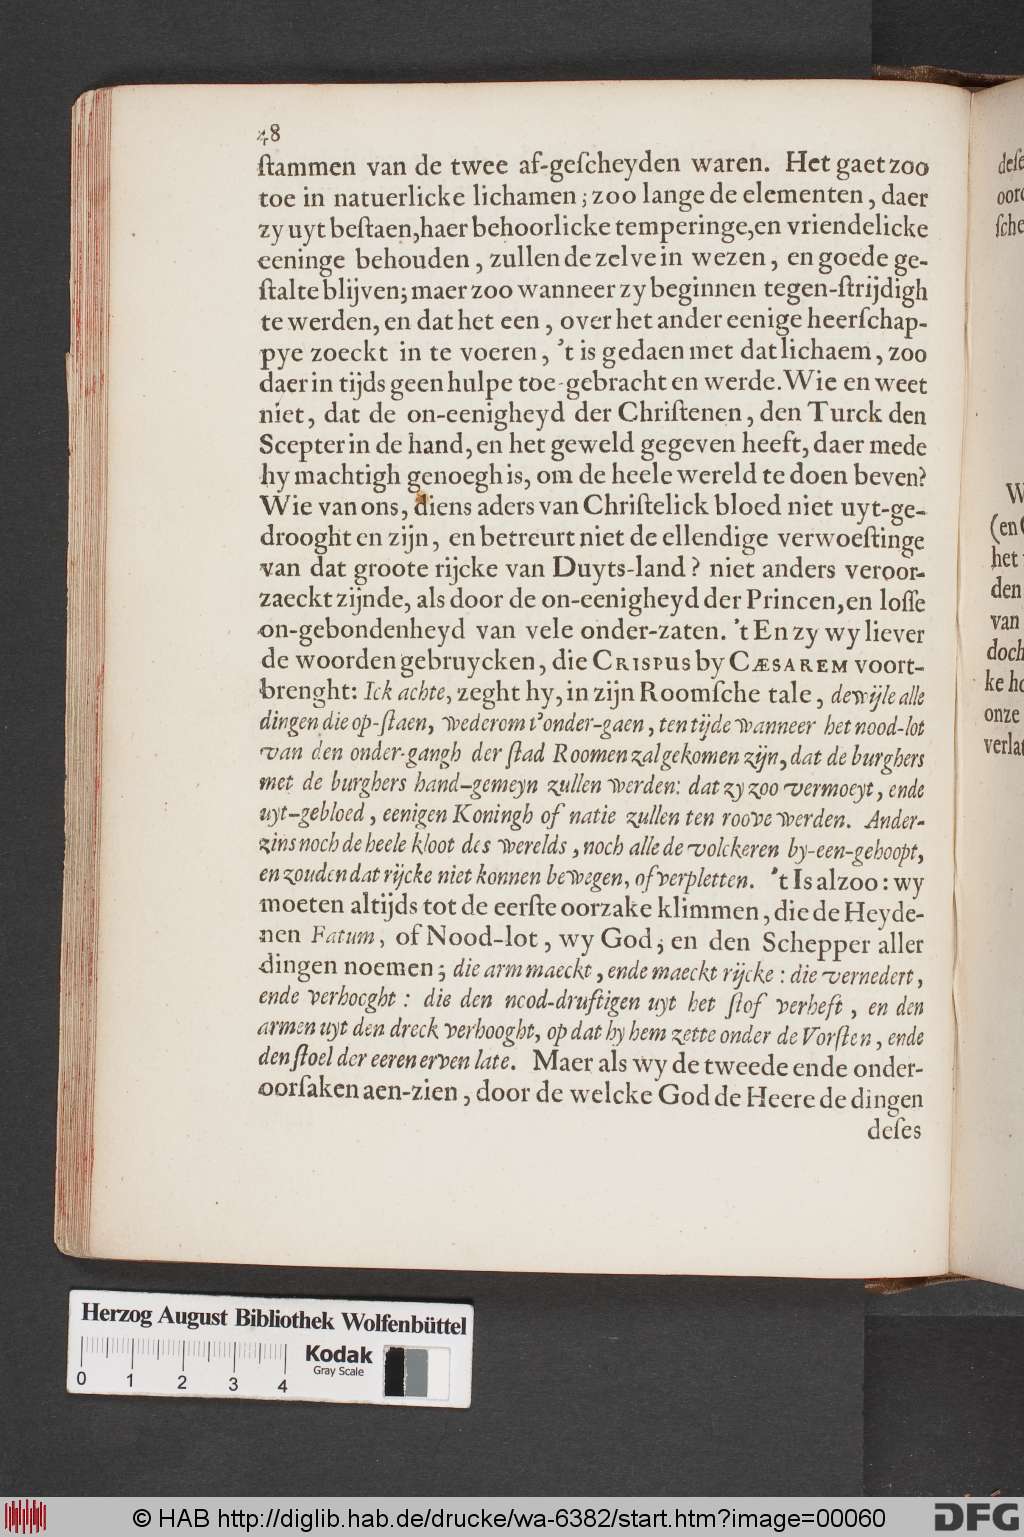 48
ſtammen van de twee af-geſcheyden waren. Het gaet zoo
toe in natuerlicke lichamen; zoo lange de elementen, daer
zy uyt beſtaen, haer behoorlicke temperinge, en vriendelicke
eeninge behouden, zullen de zelve in wezen, en goede ge-
ſtalte blijven; maer zoo wanneer zy beginnen tegen-ſtrijdigh
te werden, en dat het een, over het ander eenige heerſchap-
pye zoeckt in te voeren, 't is gedaen met dat lichaem, zoo
daer in tijds geen hulpe toe-gebracht en werde. Wie en weet
niet, dat de on-eenigheyd der Chriſtenen, den Turck den
Scepter in de hand, en het geweld gegeven heeft, daer mede
hy machtigh genoegh is, om de heele wereld te doen beven?
Wie van ons, diens aders van Chriſtelick bloed niet uyt-ge-
drooght en zijn, en betreurt niet de ellendige verwoeſtinge
van dat groote rijcke van Duyts-land? niet anders veroor-
zaeckt zijnde, als door de on-eenigheyd der Princen, en loſſe
on-gebondenheyd van vele onder-zaten. 't En zy wy liever
de woorden gebruycken, die CRISPUS by CÆSAREM voort-
brenght: Ick achte, zeght hy, in zijn Roomſche tale, dewijle alle
dingen die op-ſtaen, wederom t'onder-gaen, ten tijde wanneer het nood-lot
van den onder-gangh der ſtad Roomen zal gekomen zijn, dat de burghers
met de burghers hand-gemeyn zullen werden: dat zy zoo vermoeyt, ende
uyt-gebloed, eenigen Koningh of natie zullen ten roove werden. Ander-
zins noch de heele kloot des werelds, noch alle de volckeren by-een-gehoopt,
en zouden dat rijcke niet konnen bewegen, of verpletten. 't Is alzoo: wy
moeten altijds tot de eerſte oorzake klimmen, die de Heyde-
nen Fatum, of Nood-lot, wy God, en den Schepper aller
dingen noemen; die arm maeckt, ende maeckt rijcke: die vernedert,
ende verhooght: die den nood-druftigen uyt het ſtof verheft, en den
armen uyt den dreck verhooght, op dat hy hem zette onder de Vorſten, ende
den ſtoel der eeren erven late. Maer als wy de tweede ende onder-
oorſaken aen-zien, door de welcke God de Heere de dingen
deſes
deſe
oor
ſche
W
(en
het
den
van
doch
ke
onze
verla
Herzog August Bibliothek Wolfenbüttel
Kodak
Gray Scale
0 1 2 3 4
© HAB http://diglib.hab.de/drucke/wa-6382/start.htm?image=00060
DFG